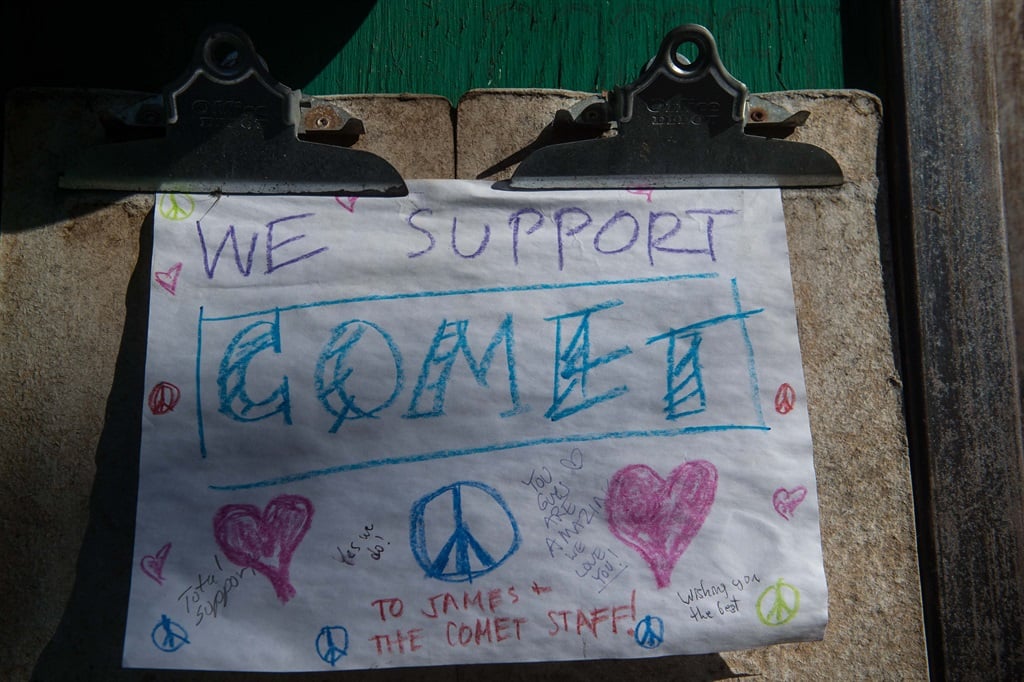 Office
DEPOT
Office
DEPOT
WE SUPPORT
COMET
YOU
GUYS
ARE
AMAZING
WE
LOVE
YOU!
Yes we
do!
Total
support
TO JAMES +
THE COMET STAFF!
Wishing you
the best